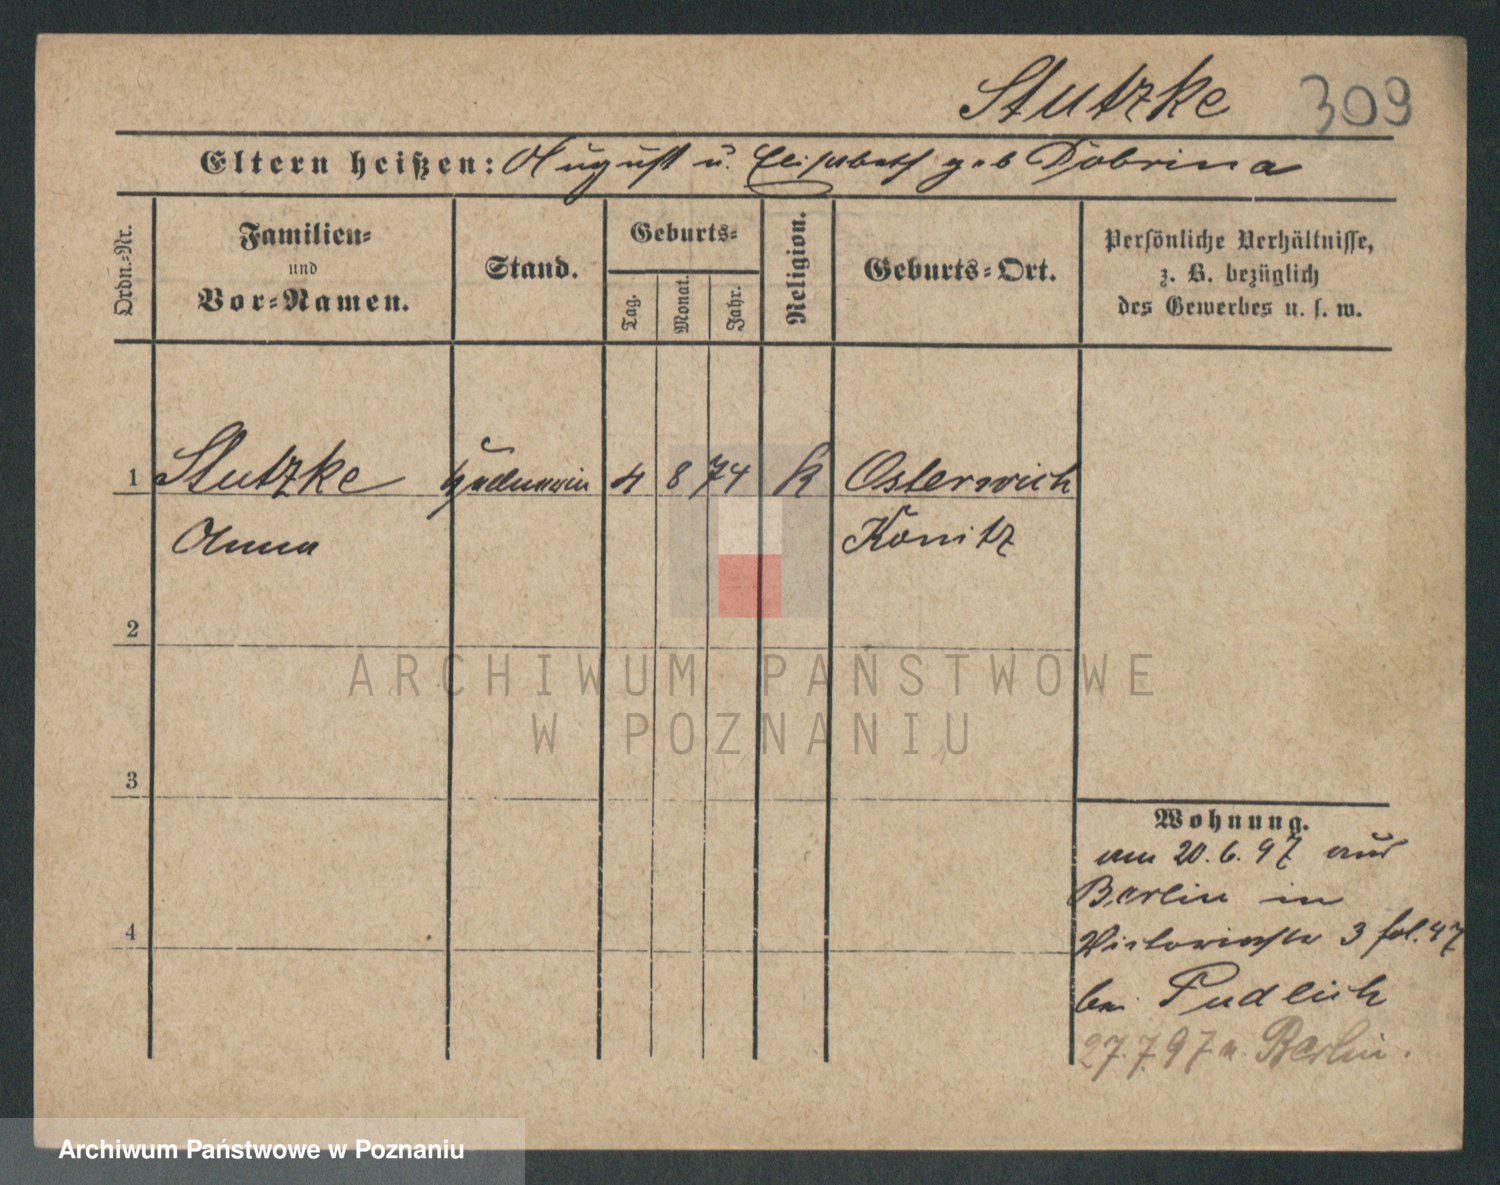 Stutzke 309
Eltern heißen: August u. Elisabeth geb Dobrina
Ordn.-Nr.
Familien-
und
Vor-Namen.
Stand.
Geburts-
Tag.
Monat.
Jahr.
Religion.
Geburts-Ort.
Persönliche Verhältnisse,
z. B. bezüglich
des Gewerbes u. s. w.
1 Stutzke 4 8 74 k Osterwick
Anna Konitz
2
3
4
Wohnung.
am 20.6.97 aus
Berlin in
Victoriastr 3 fol. 47
bei Pudlich
27.7.97 n. Berlin.
ARCHIWUM PAŃSTWOWE
W POZNANIU
Archiwum Państwowe w Poznaniu